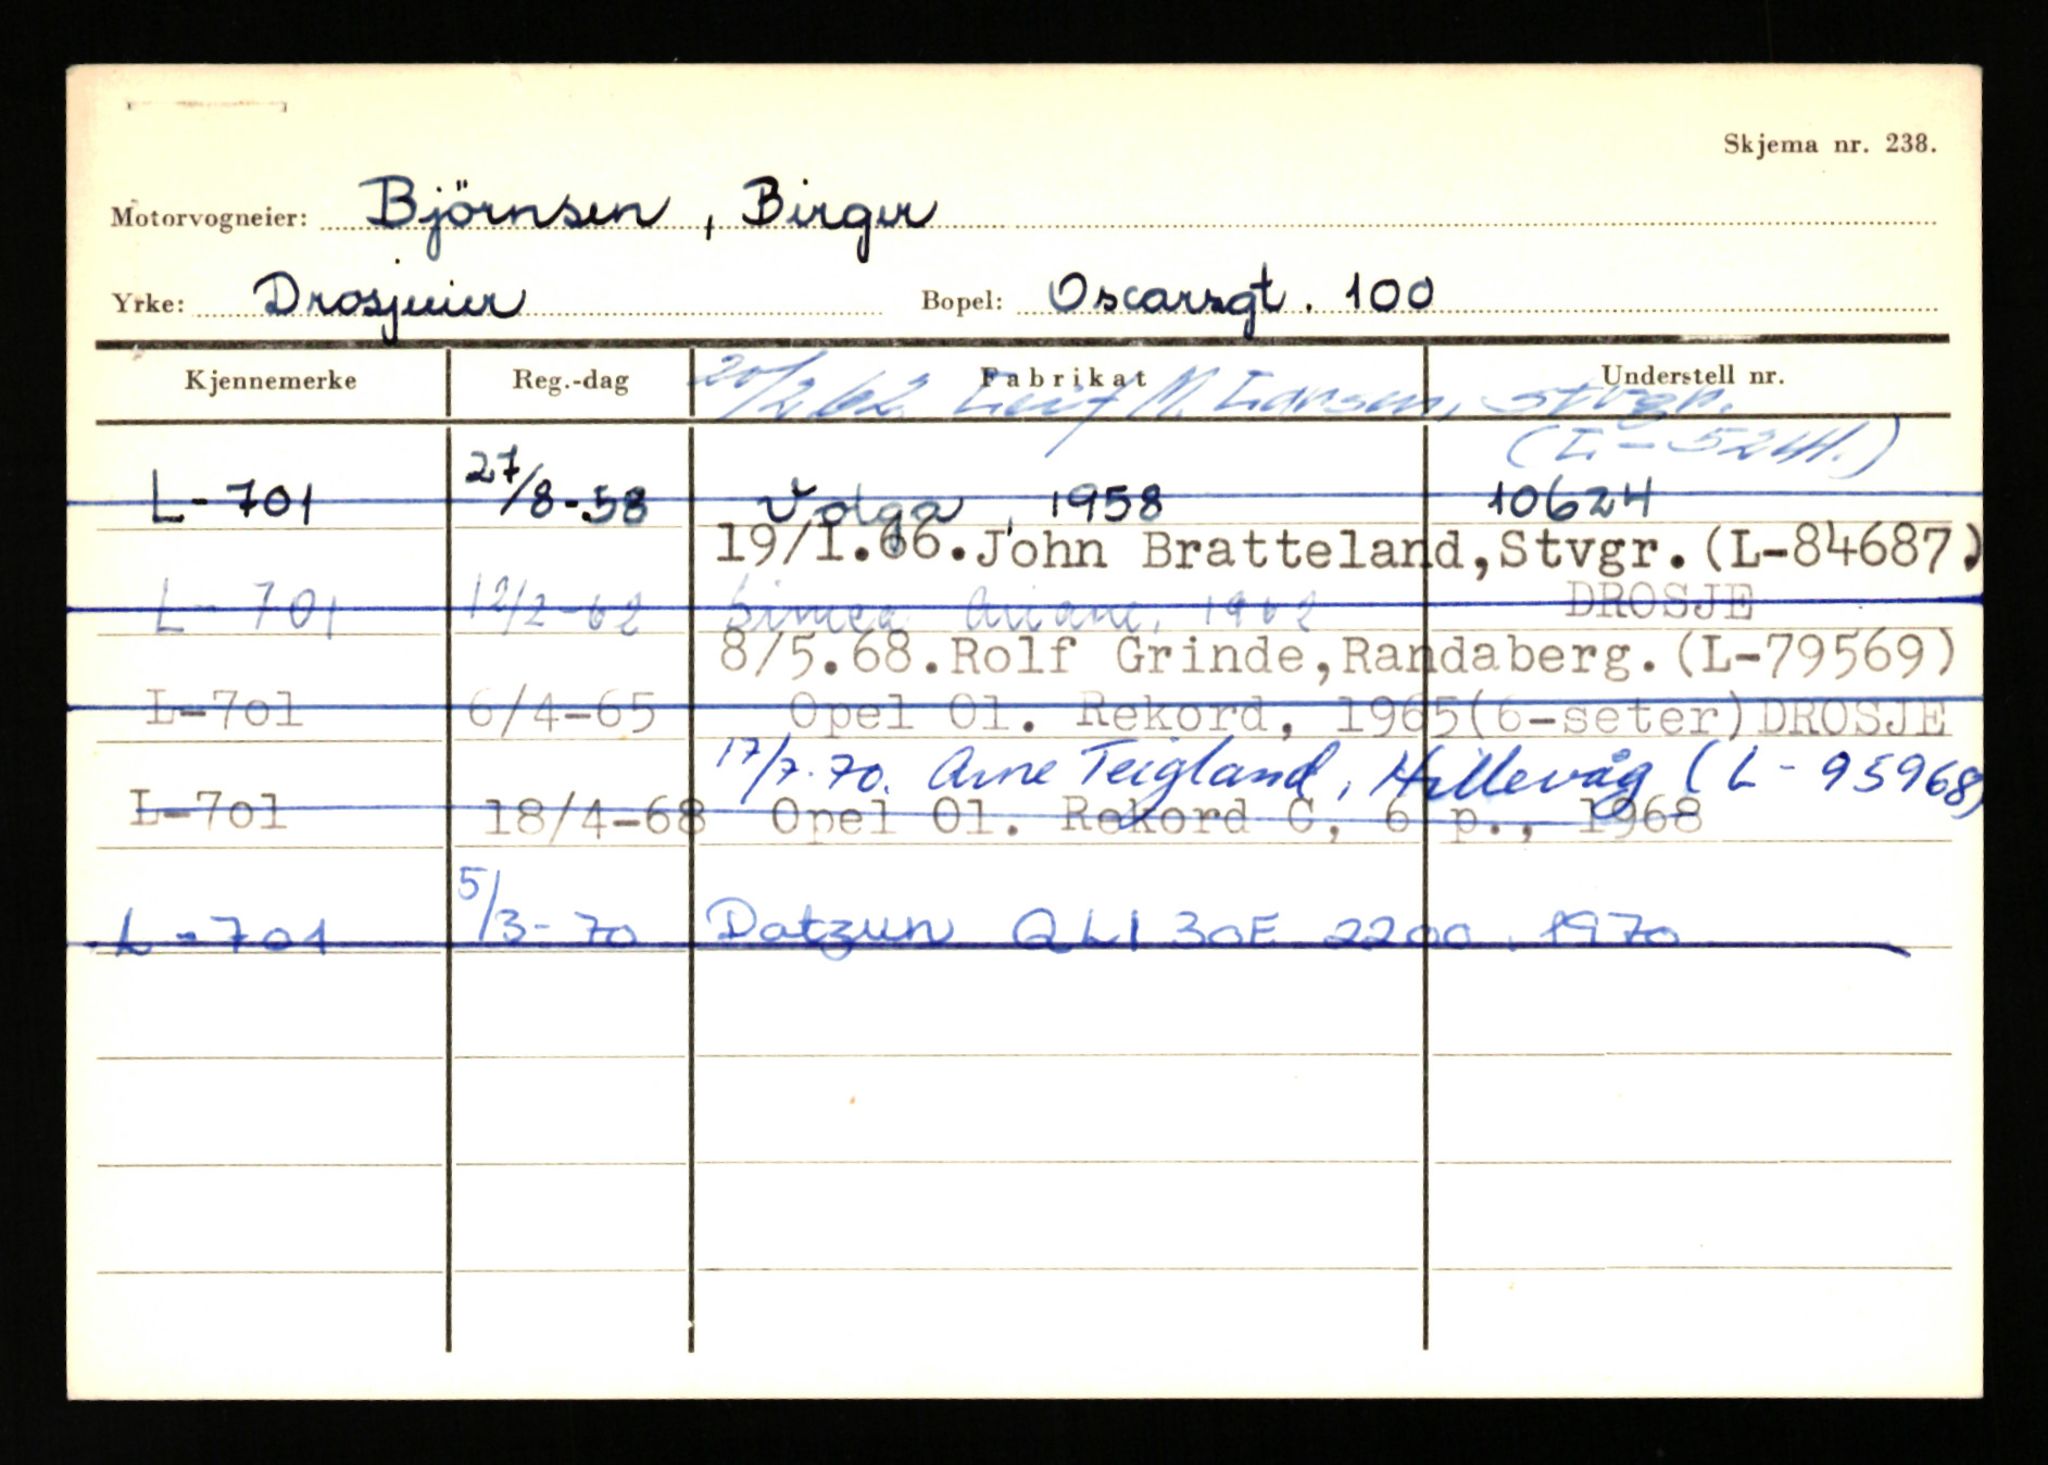 Skjema nr. 238.
Motorvogneier: Björnsen, Birger
Yrke: Drosjeeier Bopel: Oscarsgt. 100
Kjennemerke Reg.-dag Fabrikat Understell nr.
20/2 62 Leif M. Larsen, Stvgr.
(L-5241.)
L-701 27/8-58 Volga, 1958 10624
19/1.66.John Bratteland,Stvgr.(L-84687)
L-701 12/2-62 Simca Ariane, 1962 DROSJE
8/5.68.Rolf Grinde,Randaberg.(L-79569)
L-7ol 6/4-65 Opel Ol. Rekord, 1965(6-seter)DROSJE
17/7.70. Arne Teigland, Hillevåg (L-95968)
L-7ol 18/4-68 Opel Ol. Rekord C, 6 p., 1968
L-701 5/3-70 Datzun QLI 30E 2200. 1970